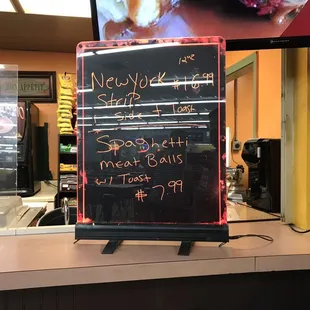 12 oz
New York $16.99
Strip
1 side + Toast
Spaghetti
meat Balls
w/ Toast
$7.99